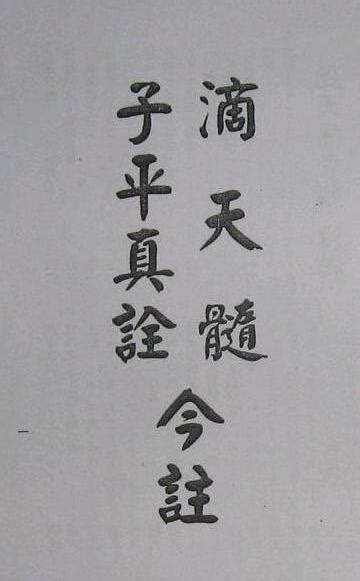 滴天髓
子平真詮
今註